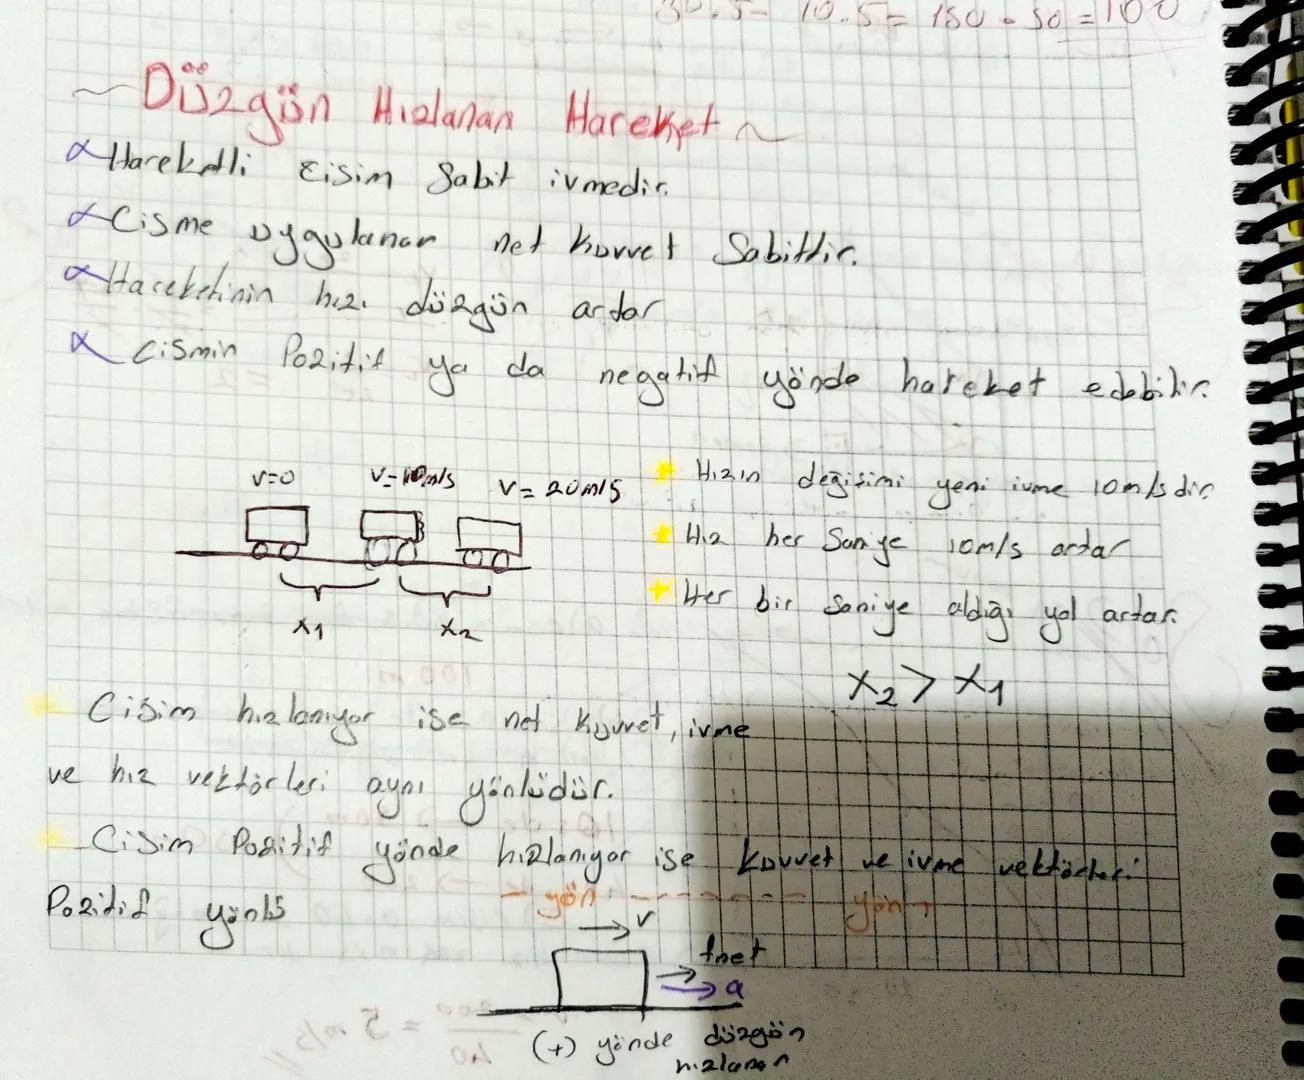 30.5- 10.5= 150-50=100
~Düzgün Hızlanan Hareket~
Hareketli cisim sabit ivmedir.
Cisme uygulanan net kuvvet sabittir.
Hareketinin hızı düzgün artar
Cismin Pozitif ya da negatif yönde hareket edebilir.
v=0 v=10m/s v= 20m/s
Hızın değişimi yeni ivme 10m/s dir
Hız her saniye 10m/s artar
Her bir saniye aldığı yol artar.
x1 x2
x2 > x1
Cisim hızlanıyor ise net kuvvet, ivme
ve hız vektörleri aynı yönlüdür.
Cisim Pozitif yönde hızlanıyor ise kuvvet ve ivme vektörleri
- yön yön +
Pozitif yönlü
v
fnet
a
(+) yönde düzgün
hızlanan